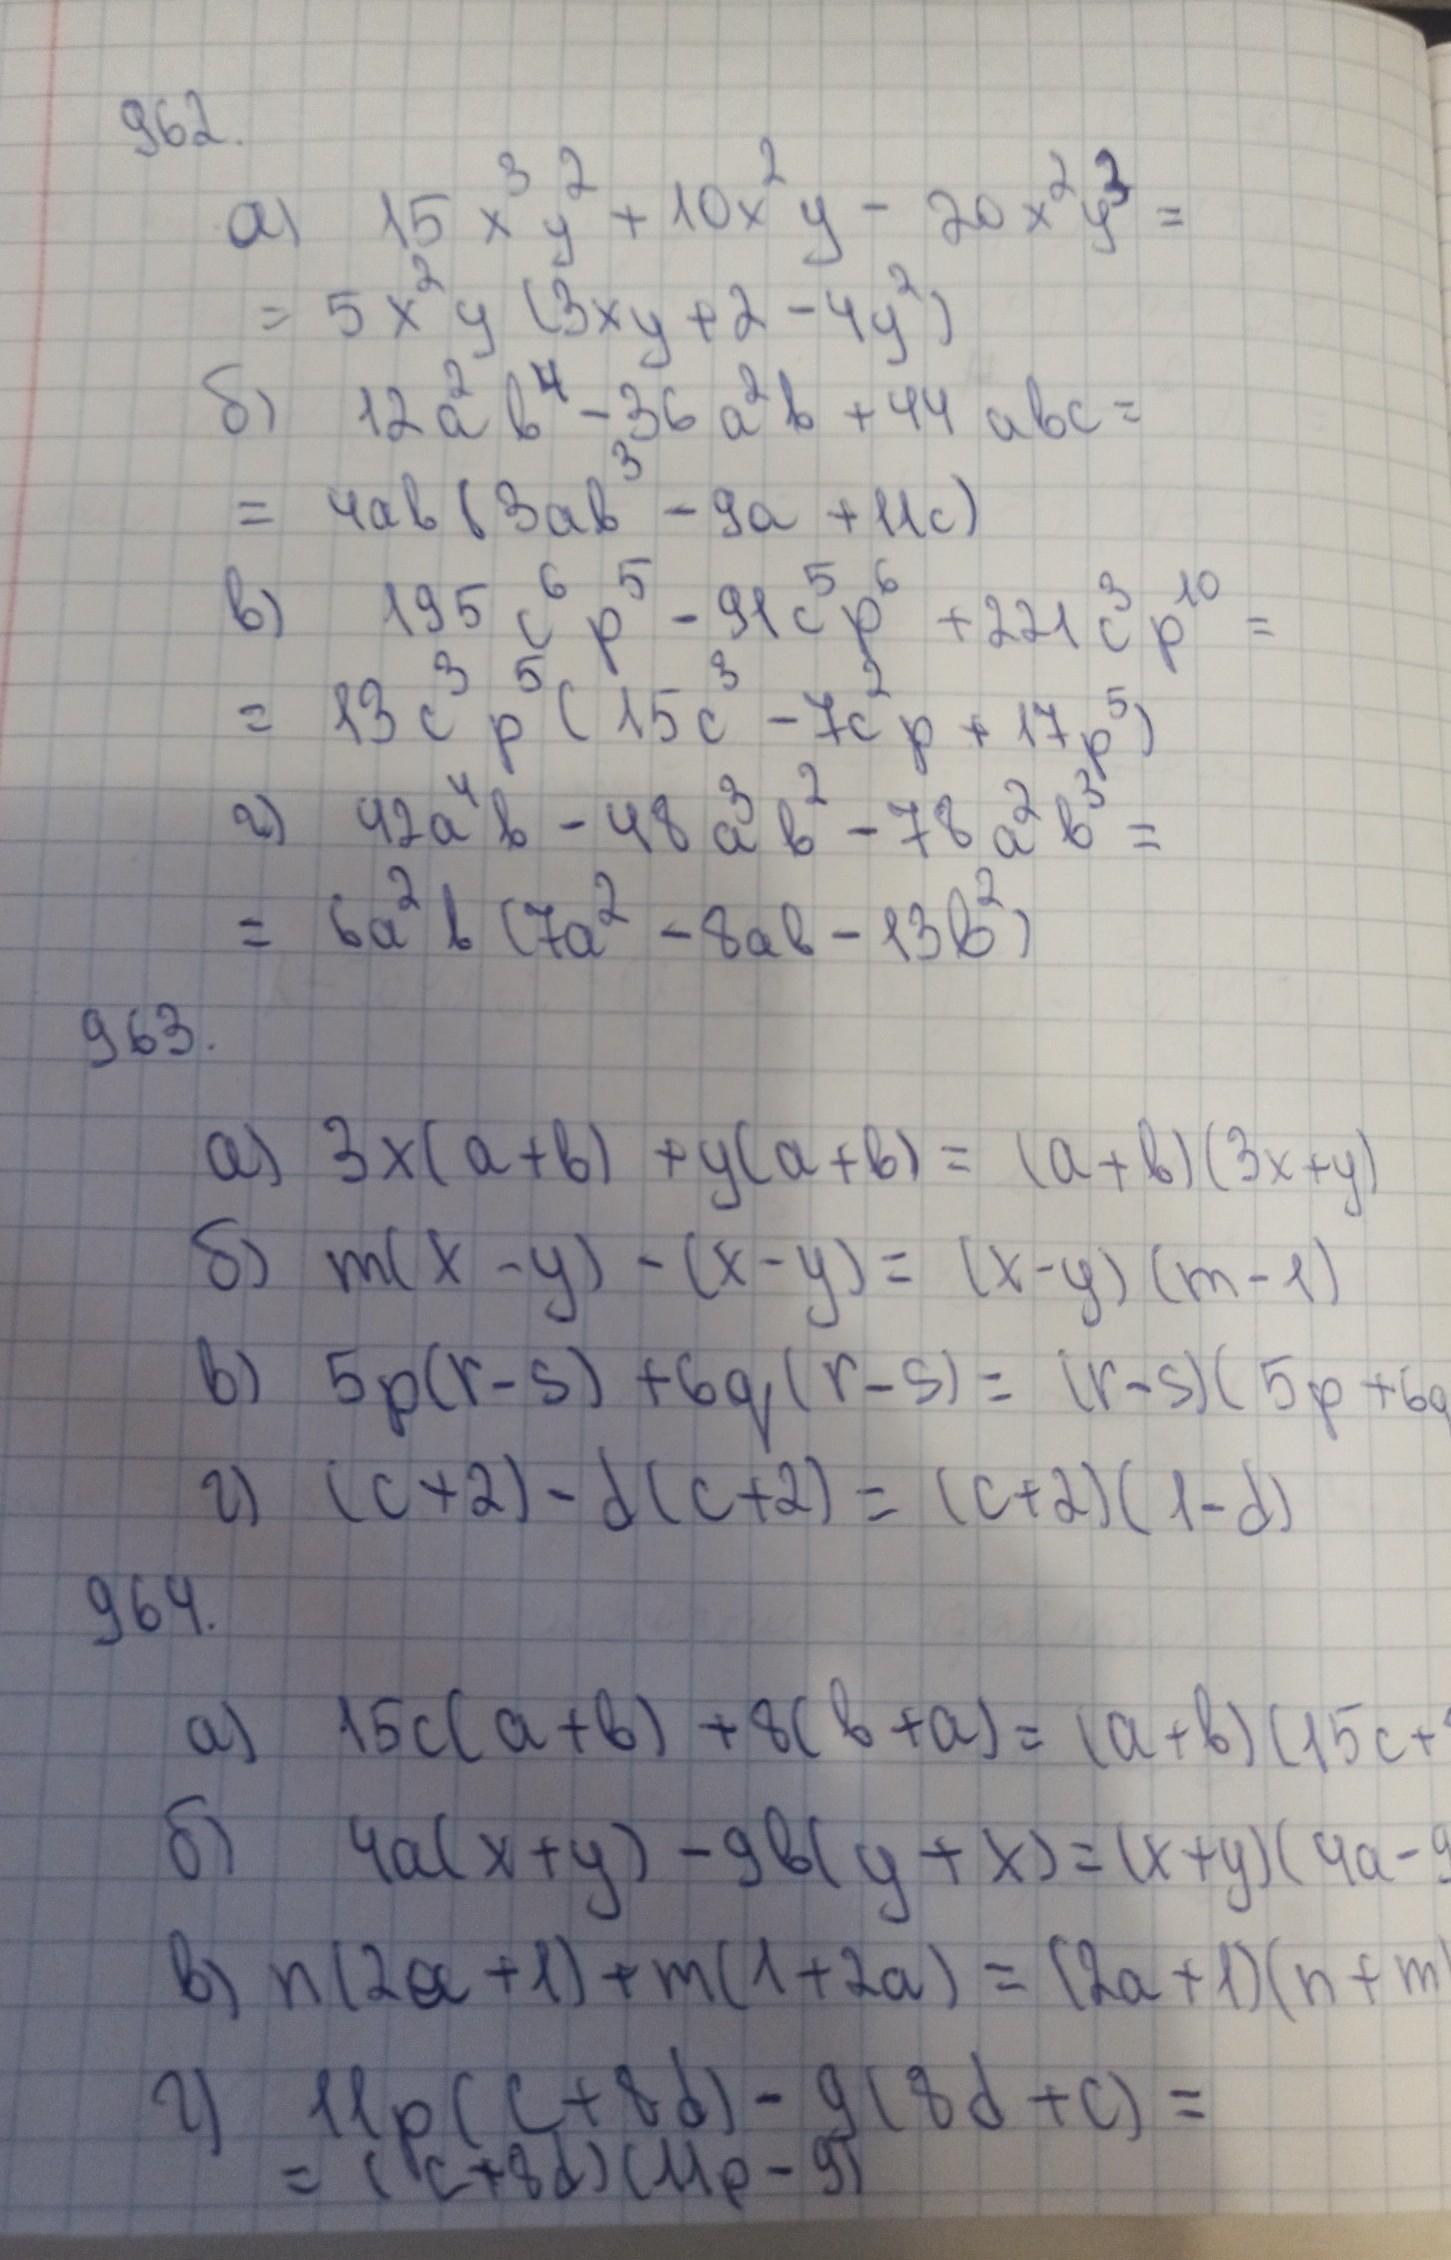 962.
а) 15x³y² + 10x²y - 20x²y³ =
= 5x²y (3xy + 2 - 4y²)
б) 12a²b⁴ - 36a²b + 44abc =
= 4ab (3ab³ - 9a + 11c)
в) 195c⁶p⁵ - 91c⁵p⁶ + 221c³p¹⁰ =
= 13c³p⁵ (15c³ - 7c²p + 17p⁵)
г) 42a⁴b - 48a³b² - 78a²b³ =
= 6a²b (7a² - 8ab - 13b²)
963.
а) 3x(a+b) + y(a+b) = (a+b)(3x+y)
б) m(x-y) - (x-y) = (x-y)(m-1)
в) 5p(r-s) + 6q(r-s) = (r-s)(5p+6q
г) (c+2) - d(c+2) = (c+2)(1-d)
964.
а) 15c(a+b) + 8(b+a) = (a+b)(15c+
б) 4a(x+y) - 9b(y+x) = (x+y)(4a-9
в) n(2a+1) + m(1+2a) = (2a+1)(n+m)
г) 11p(c+8d) - 9(8d+c) =
= (c+8d)(11p-9)